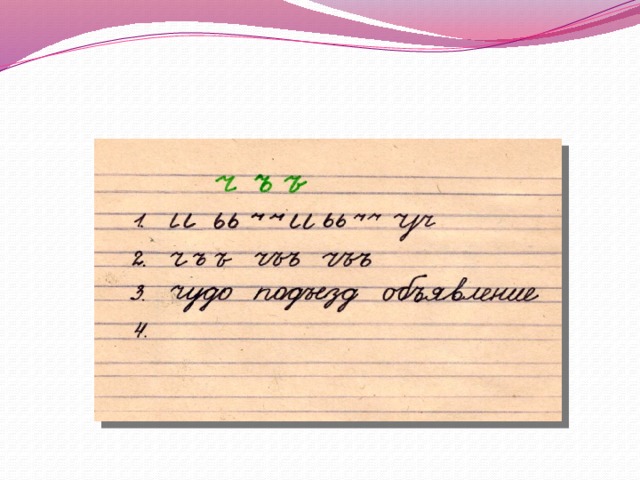 ч ъ ъ
1. ıı ьь ~ ~ ıı ьь ~ ~ уч
2. ч ъ ъ чъъ чъъ
3. чудо подъезд объявление
4.